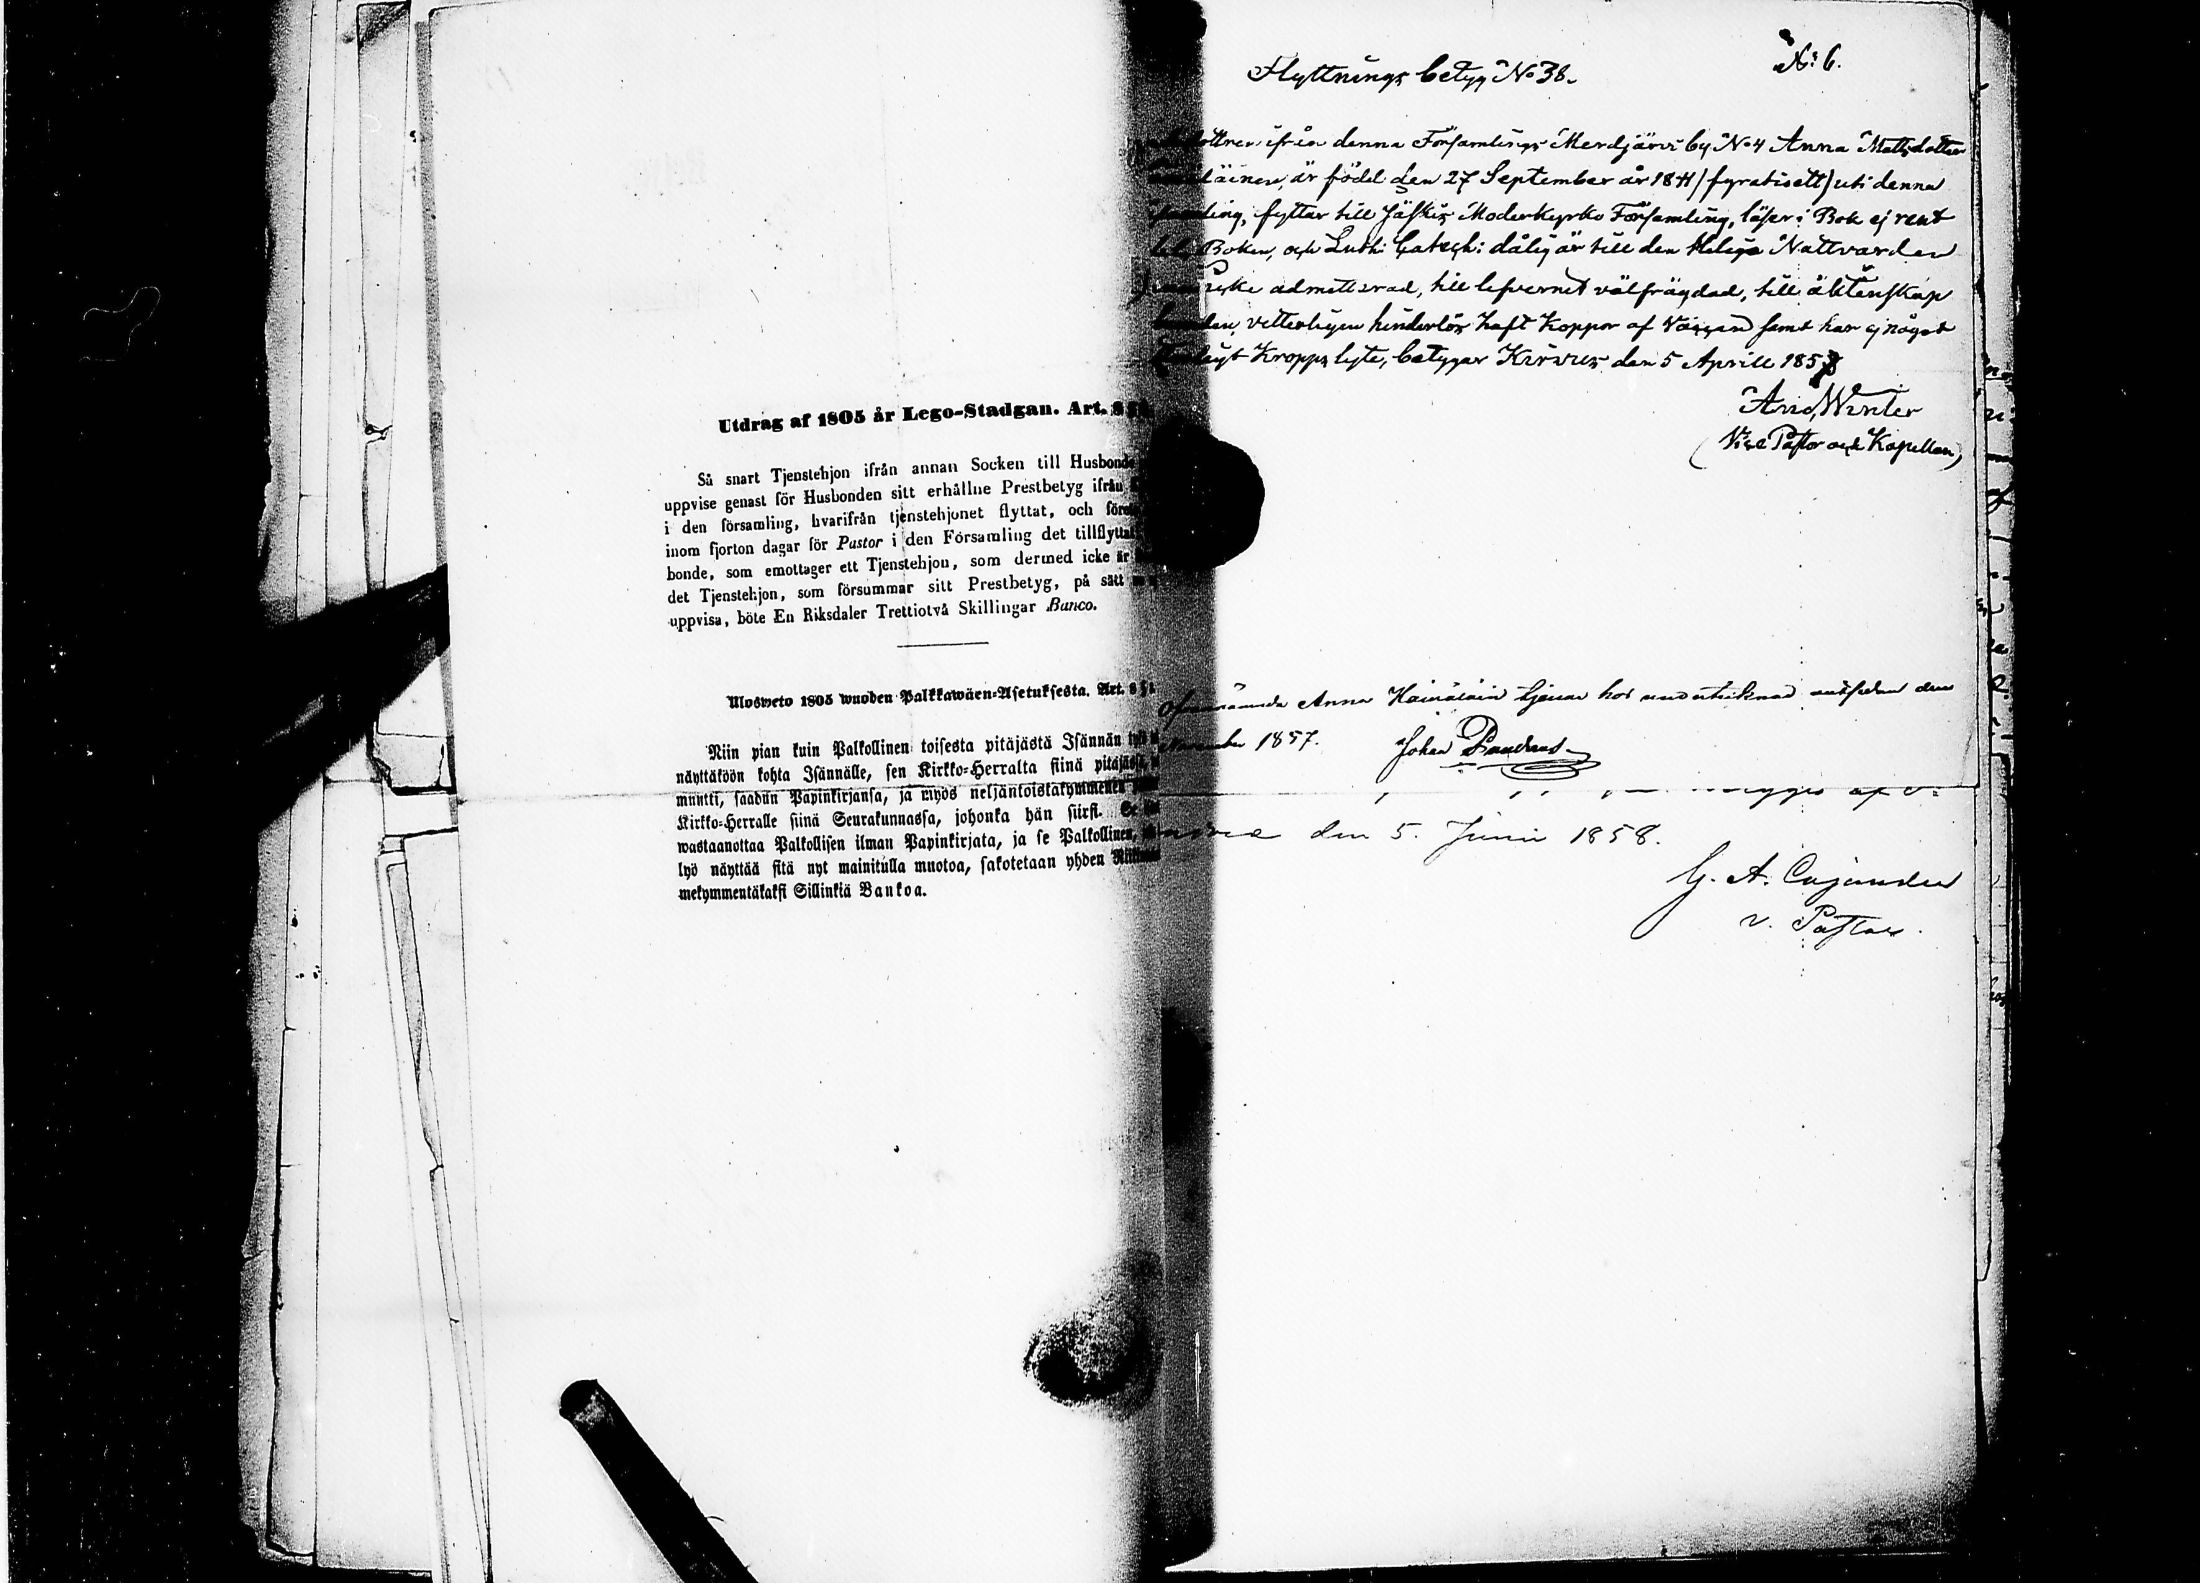 Utdrag af 1805 år Lego-Stadgan. Art.
Så snart Tjenstehjon ifrån annan Socken till Husbonde
uppvise genast för Husbonden sitt erhållne Prestbetyg ifrån
i den församling, hvarifrån tjenstehjonet flyttat, och
inom fjorton dagar för Pastor i den Församling det tillflyttat
bonde, som emottager ett Tjenstehjon, som dermed icke är
det Tjenstehjon, som försummar sitt Prestbetyg, på sätt
uppvisa, böte En Riksdaler Trettiotvå Skillingar Banco.
Ulosweto 1805 wuoden Palkkawäen-Asetuksesta. Art.
Niin pian kuin Palkollinen toisesta pitäjästä Isännän
näyttäköön kohta Isännälle, sen Kirkko-Herralta siinä pitäjässä
muutti, saadun Papinkirjansa, ja myös neljäntoistakymmenen
Kirkko-Herralle siinä Seurakunnassa, johonka hän siirsi.
wastaanottaa Palkollisen ilman Papinkirjata, ja se Palkollinen,
lyö näyttää sitä nyt mainitulla muotoa, sakotetaan yhden
mekymmentäkaksi Sillinkiä Bankoa.
Flyttnings betyg No 38.
No 6.
ifrån denna Församlings Merdjärvi by No 4 Anna Mattsdotter
är född den 27 September år 1841 (fyratiett) uti denna
flyttar till Jäskis Moderkyrko Församling, läser i Bok ej rent
Boken, och Luth: Catech: dålig är till den Heliga Nattvarden
icke admitterad, till lefvernet välfrägdad, till äktenskap
vitterligen hinderlös haft Koppor af Vaccin samt har ej något
Kropps lyte, betygar Kirvus den 5 Aprill 1858
And, Winter
(Vice Pastor och Kapellan)
Anna Kainalain tjenar hos undertecknad sedan den
November 1857. Johan
den 5. Juni 1858.
G. A. Cajander
v. Pastor.